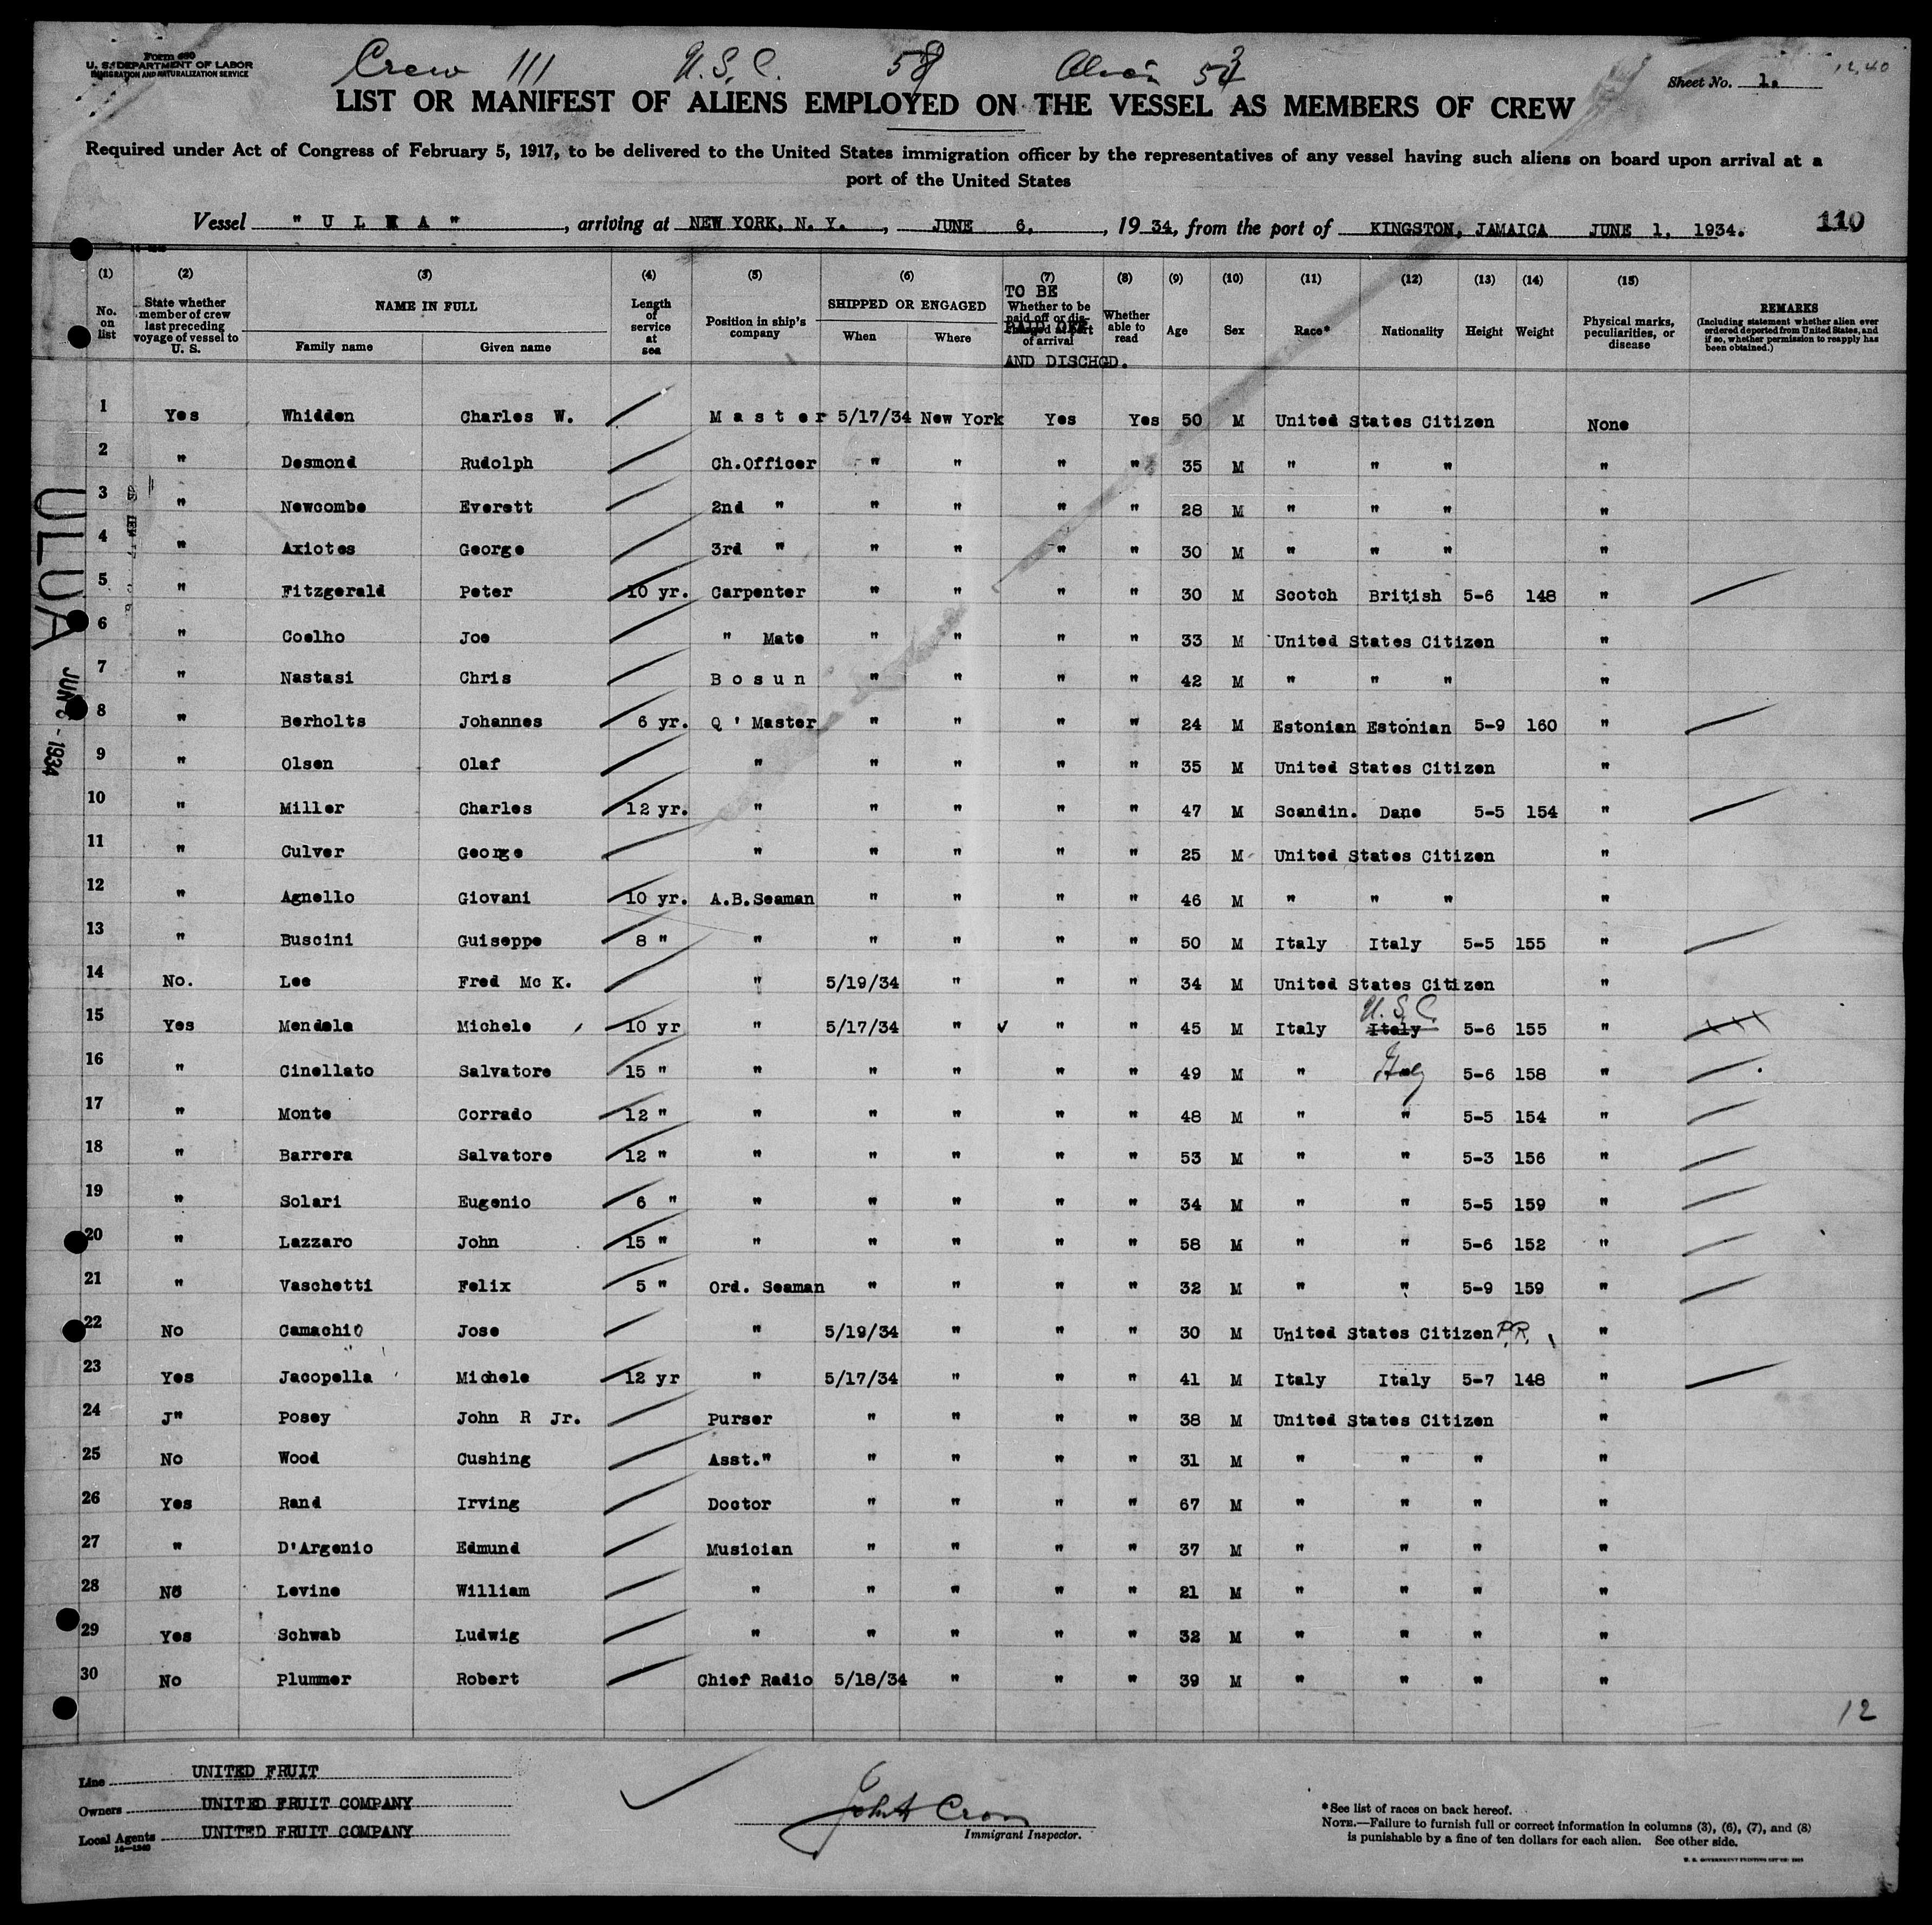 Form 680
U. S. DEPARTMENT OF LABOR
IMMIGRATION AND NATURALIZATION SERVICE
Crew 111 U.S.C. 58 Alien 53
12,40
Sheet No. 1.
LIST OR MANIFEST OF ALIENS EMPLOYED ON THE VESSEL AS MEMBERS OF CREW
Required under Act of Congress of February 5, 1917, to be delivered to the United States immigration officer by the representatives of any vessel having such aliens on board upon arrival at a
port of the United States
Vessel " U L U A " , arriving at NEW YORK, N. Y. , JUNE 6, , 1934, from the port of KINGSTON, JAMAICA JUNE 1, 1934. 110
(1) (2) (3) (4) (5) (6) (7) (8) (9) (10) (11) (12) (13) (14) (15)
No. on list
State whether member of crew last preceding voyage of vessel to U. S.
NAME IN FULL
Family name Given name
Length of service at sea
Position in ship's company
SHIPPED OR ENGAGED
When Where
TO BE PAID OFF AND DISCHGD.
Whether to be paid off or discharged at port of arrival
Whether able to read
Age Sex Race* Nationality Height Weight
Physical marks, peculiarities, or disease
REMARKS
(Including statement whether alien ever ordered deported from United States, and if so, whether permission to reapply has been obtained.)
1 Yes Whidden Charles W. M a s t e r 5/17/34 New York Yes Yes 50 M United States Citizen None
2 " Desmond Rudolph Ch.Officer " " " " 35 M " " " "
3 " Newcombe Everett 2nd " " " " " 28 M " " " "
4 " Axiotes George 3rd " " " " " 30 M " " " "
5 " Fitzgerald Peter 10 yr. Carpenter " " " " 30 M Scotch British 5-6 148 "
6 " Coelho Joe " Mate " " " " 33 M United States Citizen "
7 " Nastasi Chris B o s u n " " " " 42 M " " " "
8 " Berholts Johannes 6 yr. Q ' Master " " " " 24 M Estonian Estonian 5-9 160 "
9 " Olsen Olaf " " " " " 35 M United States Citizen "
10 " Miller Charles 12 yr. " " " " " 47 M Scandin. Dane 5-5 154 "
11 " Culver George " " " " " 25 M United States Citizen "
12 " Agnello Giovani 10 yr. A.B.Seaman " " " " 46 M " " " "
13 " Buscini Guiseppe 8 " " " " " " 50 M Italy Italy 5-5 155 "
14 No. Lee Fred Mc K. " 5/19/34 " " " 34 M United States Citizen "
15 Yes Mendela Michele 10 yr " 5/17/34 " ✓ " " 45 M Italy Italy U.S.C. 5-6 155 "
16 " Cinellato Salvatore 15 " " " " " " 49 M " Italy 5-6 158 "
17 " Monte Corrado 12 " " " " " " 48 M " " 5-5 154 "
18 " Barrera Salvatore 12 " " " " " " 53 M " " 5-3 156 "
19 " Solari Eugenio 6 " " " " " " 34 M " " 5-5 159 "
20 " Lazzaro John 15 " " " " " " 58 M " " 5-6 152 "
21 " Vaschetti Felix 5 " Ord. Seaman " " " " 32 M " " 5-9 159 "
22 No Camachio Jose " 5/19/34 " " " 30 M United States Citizen P.R. "
23 Yes Jacopella Michele 12 yr " 5/17/34 " " " 41 M Italy Italy 5-7 148 "
24 J" Posey John R Jr. Purser " " " " 38 M United States Citizen "
25 No Wood Cushing Asst." " " " " 31 M " " " "
26 Yes Rand Irving Doctor " " " " 67 M " " " "
27 " D'Argenio Edmund Musician " " " " 37 M " " " "
28 No Levine William " " " " " 21 M " " " "
29 Yes Schwab Ludwig " " " " " 32 M " " " "
30 No Plummer Robert Chief Radio 5/18/34 " " " 39 M " " " "
12
ULUA
JUN 6 - 1934
Line UNITED FRUIT
Owners UNITED FRUIT COMPANY
Local Agents UNITED FRUIT COMPANY
14—1240
Immigrant Inspector.
*See list of races on back hereof.
NOTE.—Failure to furnish full or correct information in columns (3), (6), (7), and (8)
is punishable by a fine of ten dollars for each alien. See other side.